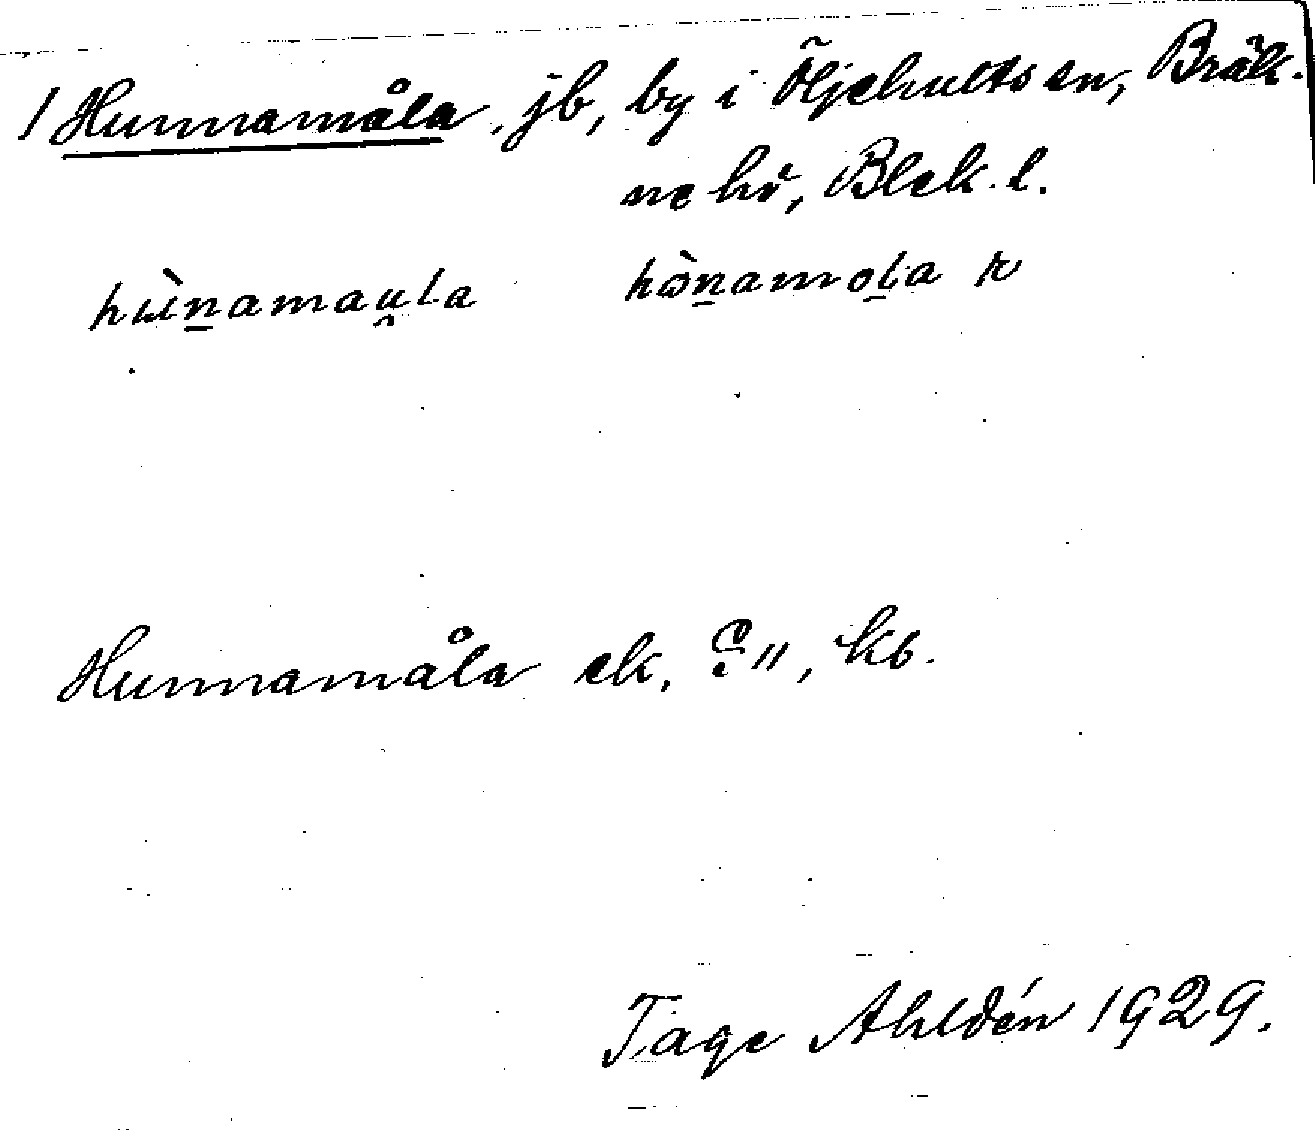 / Hunnamåla, jb, by i Öljehults sn, Bräk-
ne hd, Blek. l.
hùn̲amau̯la hòn̲amol̲a r
Hunnamåla ek, kb.
Tage Ahldén 1929.